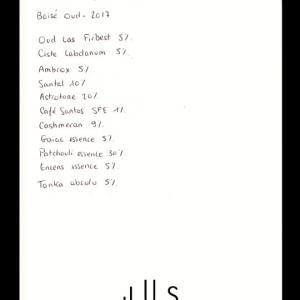 Boisé Oud - 2017
Oud Las Firbest 5%
Ciste Labdanum 5%
Ambrox 5%
Santal 10%
Astrotone 20%
Café Santos SFE 1%
Cashmeran 9%
Gaiac essence 5%
Patchouli essence 30%
Encens essence 5%
Tonka absolu 5%